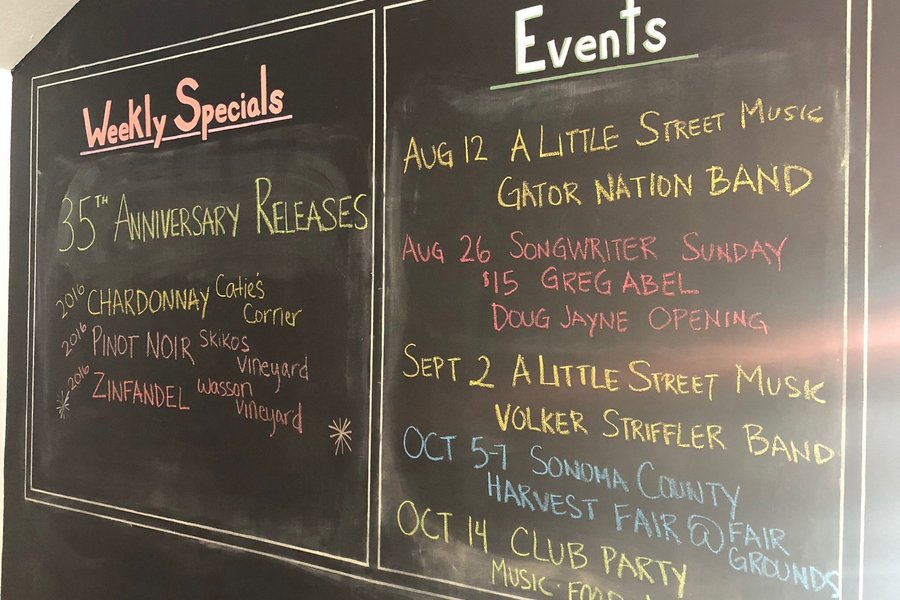 Weekly Specials
35TH ANNIVERSARY RELEASES
2016 CHARDONNAY Catie's Corner
2016 PINOT NOIR SKIKOS Vineyard
2016 ZINFANDEL Wasson Vineyard
Events
AUG 12 A LITTLE STREET MUSIC
GATOR NATION BAND
AUG 26 SONGWRITER SUNDAY
$15 GREG ABEL
DOUG JAYNE OPENING
SEPT 2 A LITTLE STREET MUSIC
VOLKER STRIFFLER BAND
OCT 5-7 SONOMA COUNTY
HARVEST FAIR @ FAIR GROUNDS
OCT 14 CLUB PARTY
MUSIC · FOOD